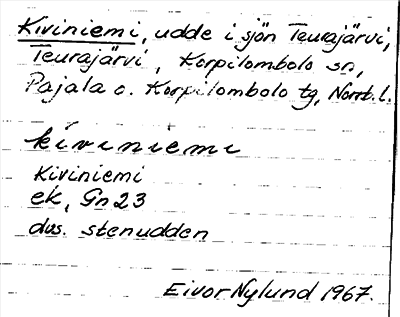 Kiviniemi, udde i sjön Teurajärvi,
Teurajärvi, Korpilombolo sn,
Pajala o. Korpilombolo tg, Norrb. l.
kiviniemi
Kiviniemi
ek, Gn 23
dvs. stenudden
Eivor Nylund 1967.